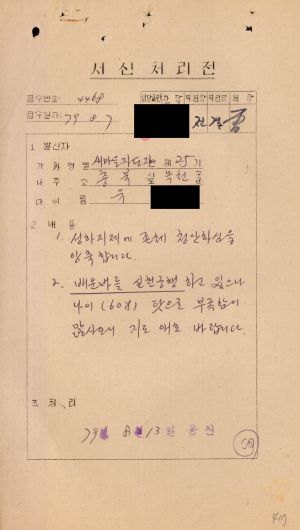 서신처리전
접수번호: 4468
접수일자: 79. 8. 7
전결
1. 발신자
가 과정별 새마을지도자반 제25기
나 주소 충북
다 이름
2. 내용
1. 성하지제에 존체 청안하심을
앙축합니다.
2. 배운바를 실천궁행 하고 있으나
나이(60才) 탓으로 부족함이
많사오니 지도 바랍니다.
3. 처리
79. 8. 13
417